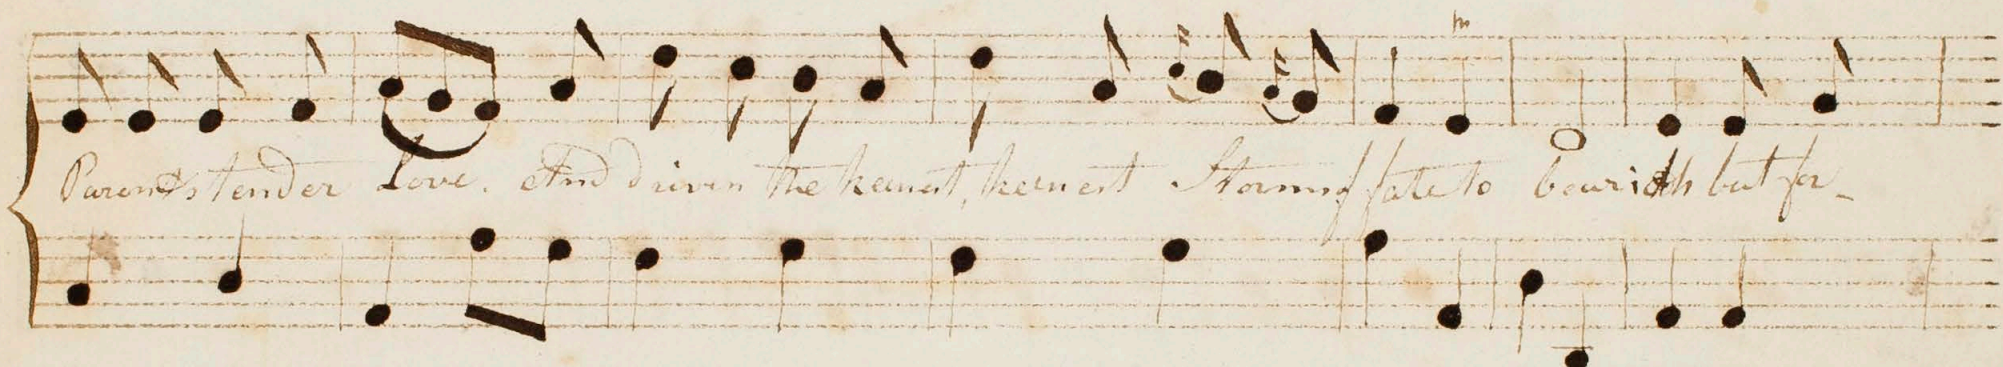 Parents tender Love. And driven the keenest, keenest Storms of fate to bear with but for_